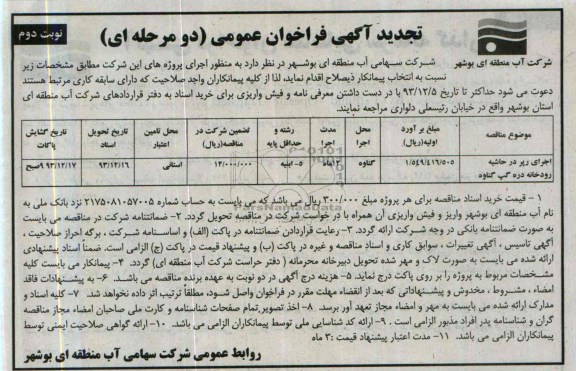 تجدید آگهی فراخوان عمومی (دو مرحله ای)
نوبت دوم
شرکت آب منطقه ای بوشهر
شرکت سهامی آب منطقه ای بوشهر در نظر دارد به منظور اجرای پروژه های این شرکت مطابق مشخصات زیر
نسبت به انتخاب پیمانکار ذیصلاح اقدام نماید، لذا از کلیه پیمانکاران واجد صلاحیت که دارای سابقه کاری مرتبط هستند
دعوت می شود حداکثر تا تاریخ ۹۳/۱۲/۵ با در دست داشتن معرفی نامه و فیش واریزی برای خرید اسناد به دفتر قراردادهای شرکت آب منطقه ای
استان بوشهر واقع در خیابان رئیسعلی دلواری مراجعه نمایند.
موضوع مناقصه
مبلغ بر آورد اولیه(ریال)
محل اجرا
مدت اجرا
رشته و حداقل پایه
تضمین شرکت در مناقصه(ریال)
محل تامین اعتبار
تاریخ تحویل اسناد
تاریخ گشایش پاکات
اجرای ریر در حاشیه رودخانه دره گپ گناوه
۱/۵۴۹/۴۱۶/۵۰۵
گناوه
۱۲ماه
۵- ابنیه
۱۲/۰۰۰/۰۰۰
استانی
۹۳/۱۲/۱۶
۹۳/۱۲/۱۷ ۹صبح
۱ - قیمت خرید اسناد مناقصه برای هر پروژه مبلغ ۳۰۰/۰۰۰ ریال می باشد که می بایست به حساب شماره ۲۱۷۵۰۸۱۰۵۷۰۰۵ نزد بانک ملی به
نام آب منطقه ای بوشهر واریز و فیش واریزی آن همراه با در خواست شرکت در مناقصه تحویل گردد. ۲- ضمانتنامه شرکت در مناقصه می بایست
به صورت ضمانتنامه بانکی در وجه شرکت ارائه گردد. ۳- رعایت قراردادن ضمانتنامه در پاکت (الف) و اساسنامه شرکت ، برگه احراز صلاحیت ،
آگهی تاسیس ، آگهی تغییرات ، سوابق کاری و اسناد مناقصه و غیره در پاکت (ب) و پیشنهاد قیمت در پاکت (ج) الزامی است. ضمناً اسناد پیشنهادی
ارائه شده می بایست به صورت لاک و مهر شده تحویل دبیرخانه محرمانه ( دفتر حراست شرکت آب منطقه ای) گردد. ۴- پیمانکار می بایست کلیه
مشخصات مربوط به پروژه را بر روی پاکت درج نماید. ۵- هزینه درج آگهی در دو نوبت به عهده برنده مناقصه می باشد. ۶- به پیشنهادات فاقد
امضاء ، مشروط ، مخدوش و پیشنهاداتی که بعد از انقضاء مهلت مقرر در فراخوان واصل شود، مطلقاً ترتیب اثر داده نخواهد شد. ۷- کلیه اسناد و
مدارک ارائه شده می بایست به مهر و امضاء مجاز تعهد آور برسد. ۸- اخذ تصویر تمام صفحات شناسنامه و کارت ملی صاحبان امضاء مجاز مناقصه
گران و شناسنامه پدر افراد مذبور الزامی است . ۹- ارائه کد شناسایی ملی توسط پیمانکاران الزامی می باشد. ۱۰- ارائه گواهی صلاحیت ایمنی توسط
پیمانکاران الزامی می باشد. ۱۱- مدت اعتبار پیشنهاد قیمت :۳ ماه
روابط عمومی شرکت سهامی آب منطقه ای بوشهر